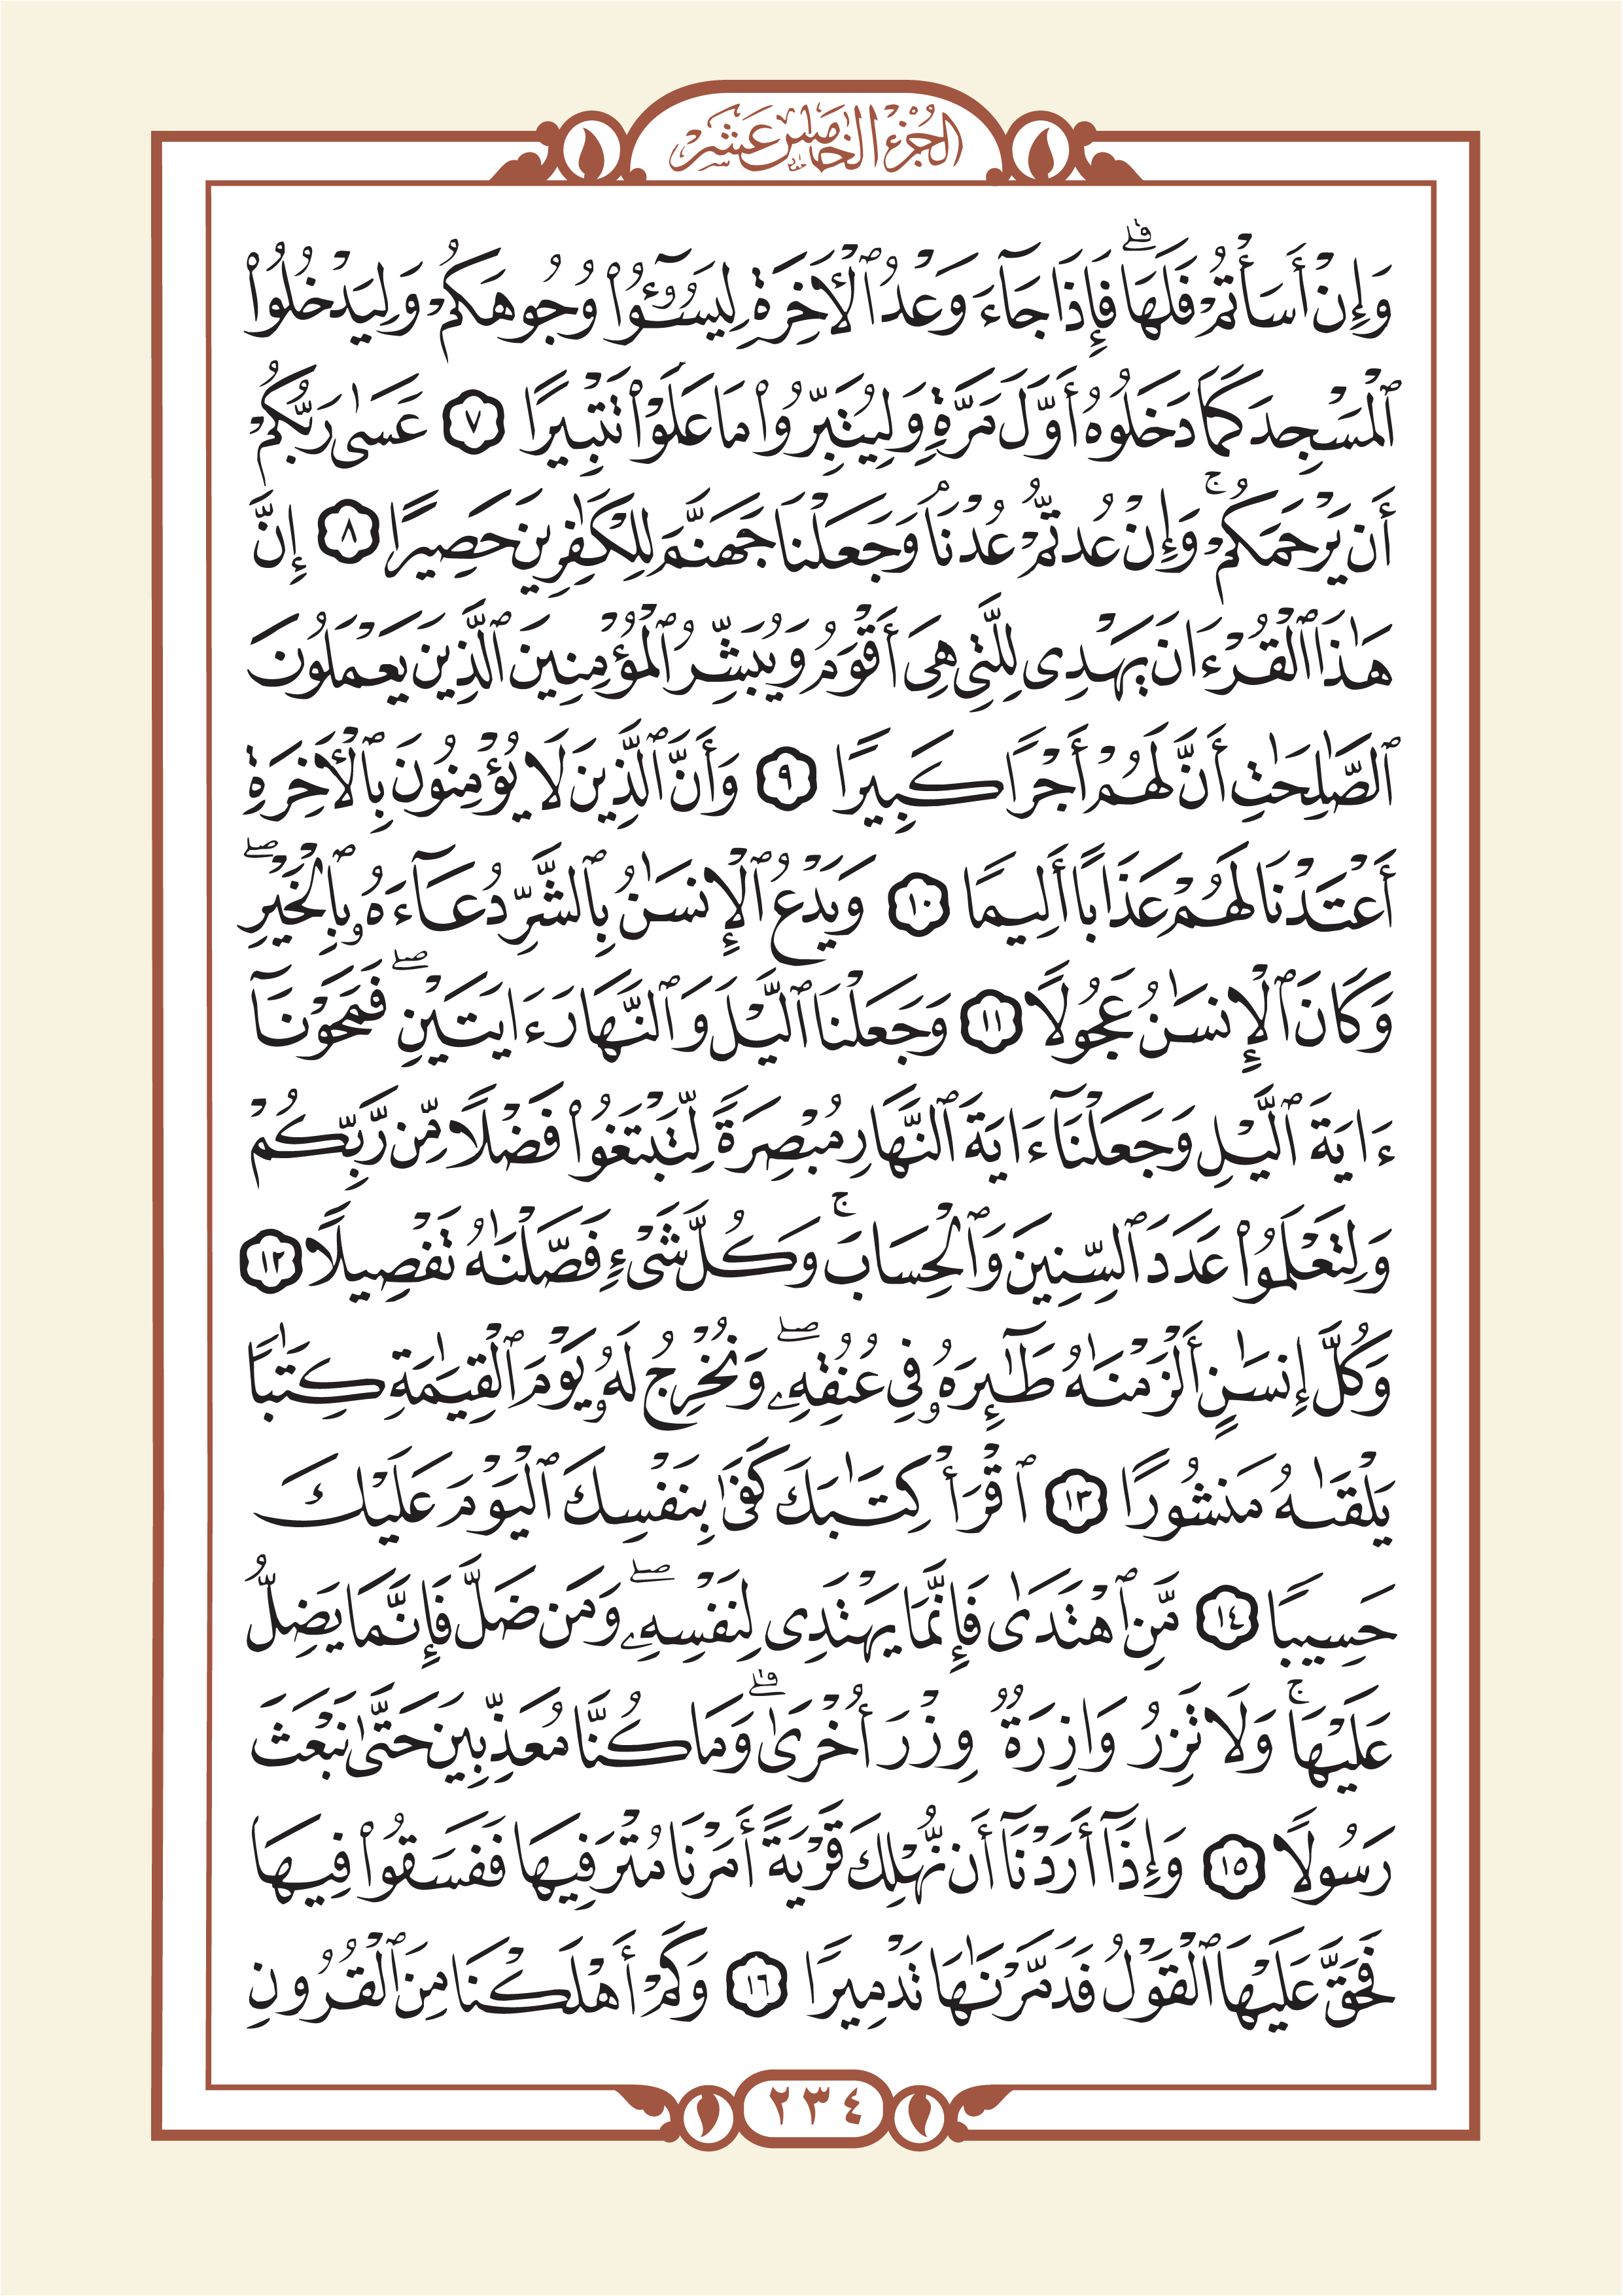 الجزء الخامس عشر
وَإِنْ أَسَأْتُمْ فَلَهَا ۚ فَإِذَا جَآءَ وَعْدُ ٱلْأَخِرَةِ لِيَسُـࣳۥٓـُٔوا۟ وُجُوهَكُمْ وَلِيَدْخُلُوا۟
ٱلْمَسْجِدَ كَمَا دَخَلُوهُ أَوَّلَ مَرَّةٍ وَلِيُتَبِّرُوا۟ مَا عَلَوْا۟ تَتْبِيرًا ٧ عَسَىٰ رَبُّكُمْ
أَن يَرْحَمَكُمْ ۚ وَإِنْ عُدتُّمْ عُدْنَا ۘ وَجَعَلْنَا جَهَنَّمَ لِلْكَـٰفِرِينَ حَصِيرًا ٨ إِنَّ
هَـٰذَا ٱلْقُرْءَانَ يَهْدِى لِلَّتِى هِىَ أَقْوَمُ وَيُبَشِّرُ ٱلْمُؤْمِنِينَ ٱلَّذِينَ يَعْمَلُونَ
ٱلصَّـٰلِحَـٰتِ أَنَّ لَهُمْ أَجْرًا كَبِيرًا ٩ وَأَنَّ ٱلَّذِينَ لَا يُؤْمِنُونَ بِٱلْأَخِرَةِ
أَعْتَدْنَا لَهُمْ عَذَابًا أَلِيمًا ١٠ وَيَدْعُ ٱلْإِنسَـٰنُ بِٱلشَّرِّ دُعَآءَهُۥ بِٱلْخَيْرِ ۖ
وَكَانَ ٱلْإِنسَـٰنُ عَجُولًا ١١ وَجَعَلْنَا ٱلَّيْلَ وَٱلنَّهَارَ ءَايَتَيْنِ ۖ فَمَحَوْنَآ
ءَايَةَ ٱلَّيْلِ وَجَعَلْنَآ ءَايَةَ ٱلنَّهَارِ مُبْصِرَةً لِّتَبْتَغُوا۟ فَضْلًا مِّن رَّبِّكُمْ
وَلِتَعْلَمُوا۟ عَدَدَ ٱلسِّنِينَ وَٱلْحِسَابَ ۚ وَكُلَّ شَىْءٍ فَصَّلْنَـٰهُ تَفْصِيلًا ١٢
وَكُلَّ إِنسَـٰنٍ أَلْزَمْنَـٰهُ طَـٰٓئِرَهُۥ فِى عُنُقِهِۦ ۖ وَنُخْرِجُ لَهُۥ يَوْمَ ٱلْقِيَـٰمَةِ كِتَـٰبًا
يَلْقَىٰهُ مَنشُورًا ١٣ ٱقْرَأْ كِتَـٰبَكَ كَفَىٰ بِنَفْسِكَ ٱلْيَوْمَ عَلَيْكَ
حَسِيبًا ١٤ مَّنِ ٱهْتَدَىٰ فَإِنَّمَا يَهْتَدِى لِنَفْسِهِۦ ۖ وَمَن ضَلَّ فَإِنَّمَا يَضِلُّ
عَلَيْهَا ۚ وَلَا تَزِرُ وَازِرَةٌ وِزْرَ أُخْرَىٰ ۗ وَمَا كُنَّا مُعَذِّبِينَ حَتَّىٰ نَبْعَثَ
رَسُولًا ١٥ وَإِذَآ أَرَدْنَآ أَن نُّهْلِكَ قَرْيَةً أَمَرْنَا مُتْرَفِيهَا فَفَسَقُوا۟ فِيهَا
فَحَقَّ عَلَيْهَا ٱلْقَوْلُ فَدَمَّرْنَـٰهَا تَدْمِيرًا ١٦ وَكَمْ أَهْلَكْنَا مِنَ ٱلْقُرُونِ
٢٣٤